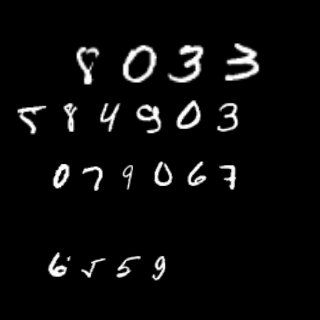 8033
584903
079067
6559